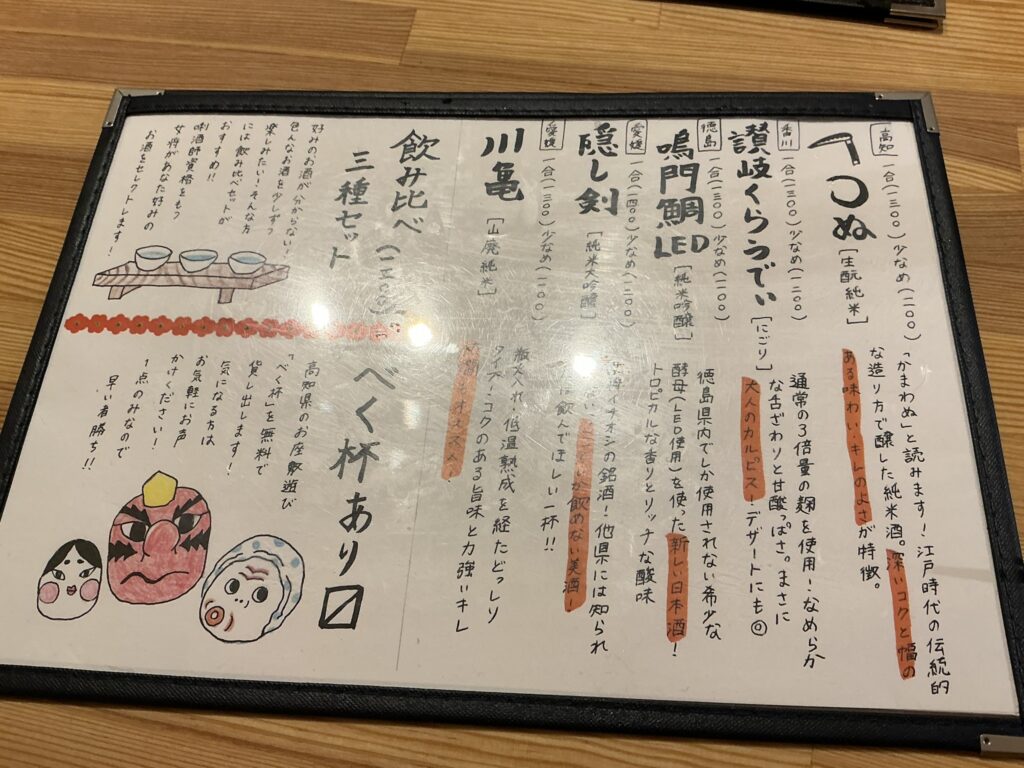 〇ぬ [生酛純米]
高知 一合(一三〇〇)少なめ(一一〇〇)
「かまわぬ」と読みます！江戸時代の伝統的
な造り方で醸した純米酒。深いコクと幅の
ある味わい・キレのよさが特徴。
讃岐くらうでぃ [にごり]
香川 一合(一三〇〇)少なめ(一一〇〇)
通常の3倍量の麹を使用！なめらか
な舌ざわりと甘酸っぱさ。まさに
大人のカルピス！デザートにも◎
鳴門鯛LED [純米吟醸]
徳島 一合(一三〇〇)少なめ(一一〇〇)
徳島県内でしか使用されない希少な
酵母(LED使用)を使った新しい日本酒！
トロピカルな香りとリッチな酸味
隠し剣 [純米大吟醸]
愛媛 一合(一四〇〇)少なめ(一二〇〇)
イチオシの銘酒！他県には知られ
ここでしか飲めない美酒！
に飲んでほしい一杯!!
川亀 [山廃純米]
愛媛 一合(一三〇〇)少なめ(一一〇〇)
瓶火入れ・低温熟成を経たどっしり
タイプ！コクのある旨味と力強いキレ
オススメ！
飲み比べ
三種セット
好みのお酒が分からない！
色んなお酒を少しずつ
楽しみたい！そんな方
には飲み比べセットが
おすすめ!!
唎酒師資格をもつ
女将があなた好みの
お酒をセレクトします！
べく杯あり〼
高知県のお座敷遊び
「べく杯」を無料で
貸し出します！
気になる方は
お気軽にお声
かけください！
1点のみなので
早い者勝ち!!